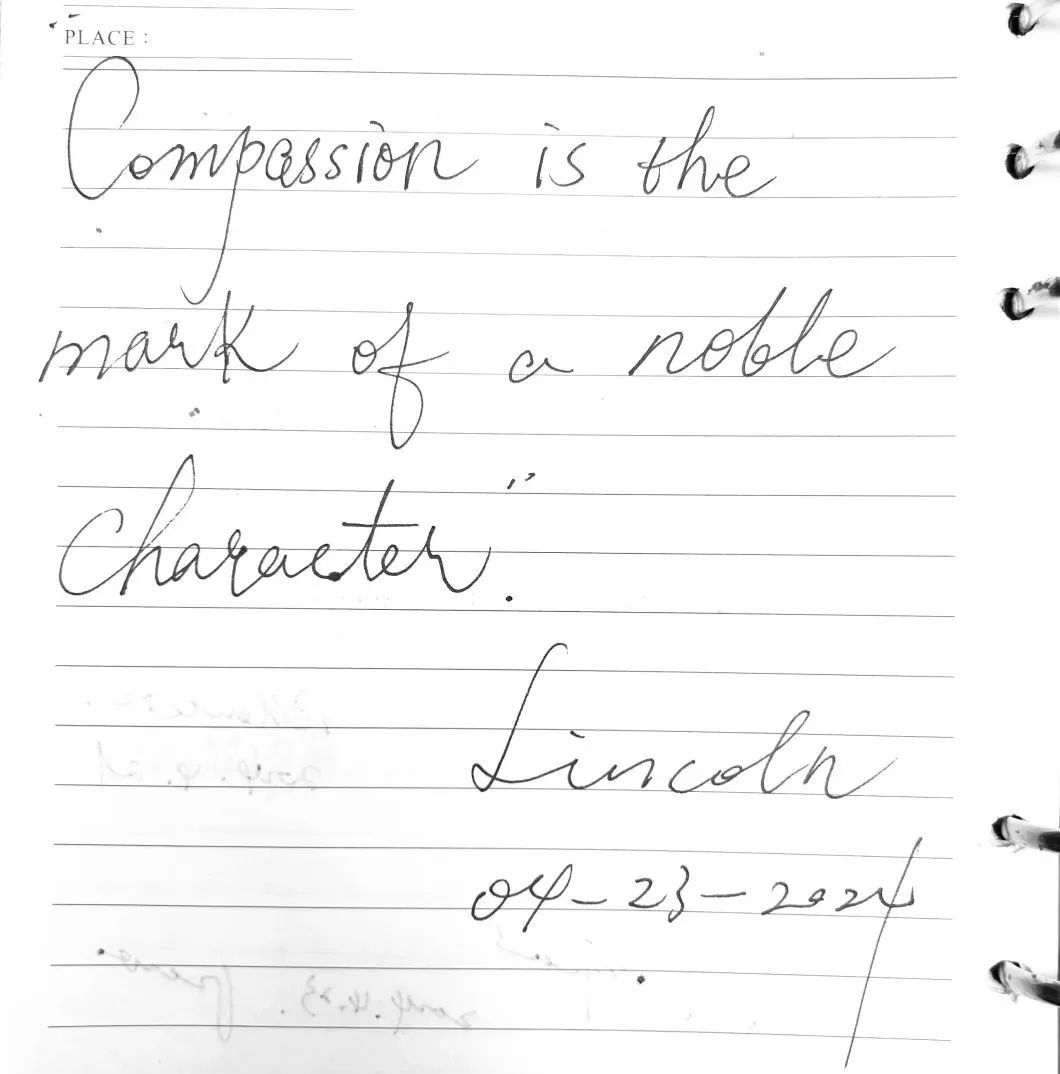 PLACE :
"Compassion is the
mark of a noble
character."
Lincoln
04-23-2024